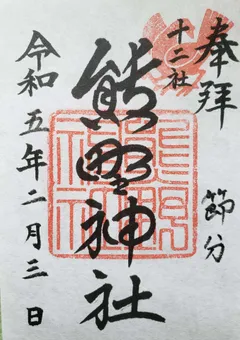 奉拝
節分
十二社
熊野神社
令和五年二月三日